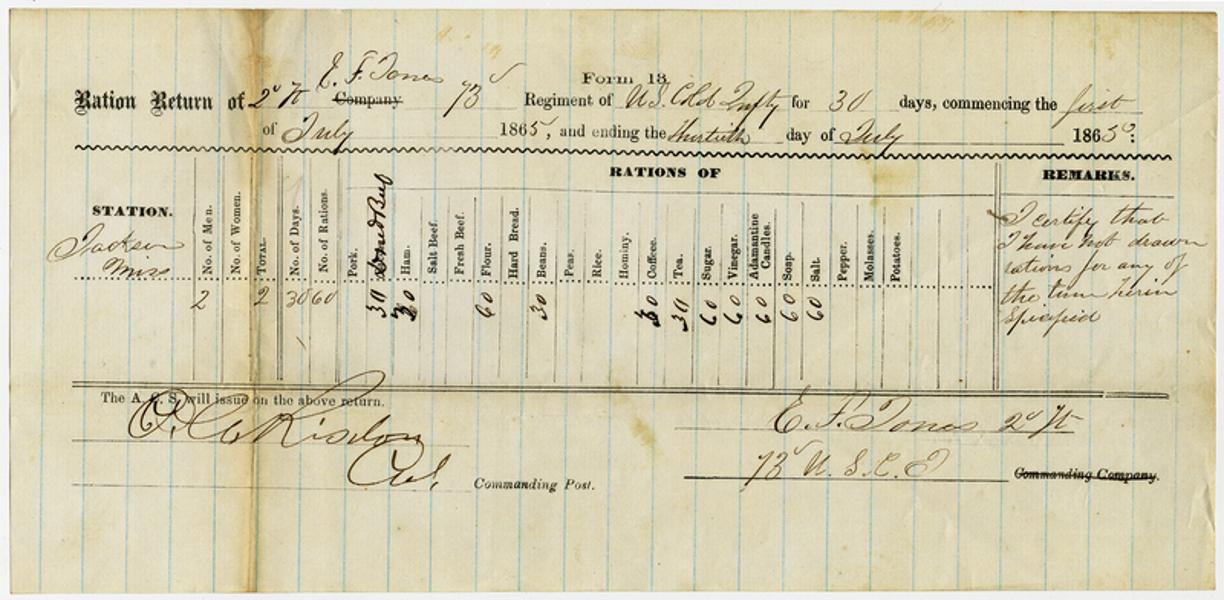 Form 13.
E. F. Jones
Ration Return of 2d Lt Company 73d Regiment of U.S. Cold Infty for 30 days, commencing the first
of July 1865, and ending the thirtieth day of July 1865:
RATIONS OF
REMARKS.
STATION.
No. of Men.
No. of Women.
TOTAL.
No. of Days.
No. of Rations.
Pork.
Ham.
Salt Beef.
Fresh Beef.
Flour.
Hard Bread.
Beans.
Peas.
Rice.
Hominy.
Coffee.
Tea.
Sugar.
Vinegar.
Adamantine Candles.
Soap.
Salt.
Pepper.
Molasses.
Potatoes.
Jackson
Miss
2 2 30 60 30 60 30 30 60 60 60 60 60
I certify that
I have not drawn
rations for any of
the time herin
specified
The A. C. S. will issue on the above return.
Col. Commanding Post.
E. F. Jones 2d Lt
73d U. S. C. I Commanding Company.